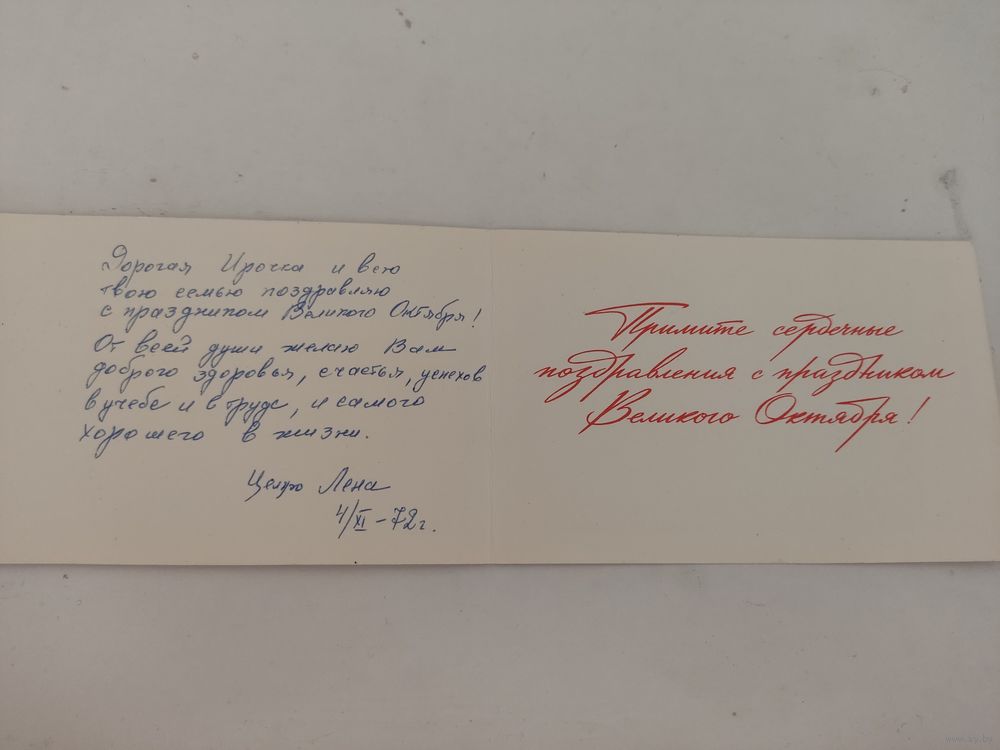 Дорогая Ирочка и всю
твою семью поздравляю
с праздником Великого Октября!
От всей души желаю Вам
доброго здоровья, счастья, успехов
в учебе и в труде, и самого
хорошего в жизни.
Целую Лена
4/XI – 72 г.
Примите сердечные
поздравления с праздником
Великого Октября!